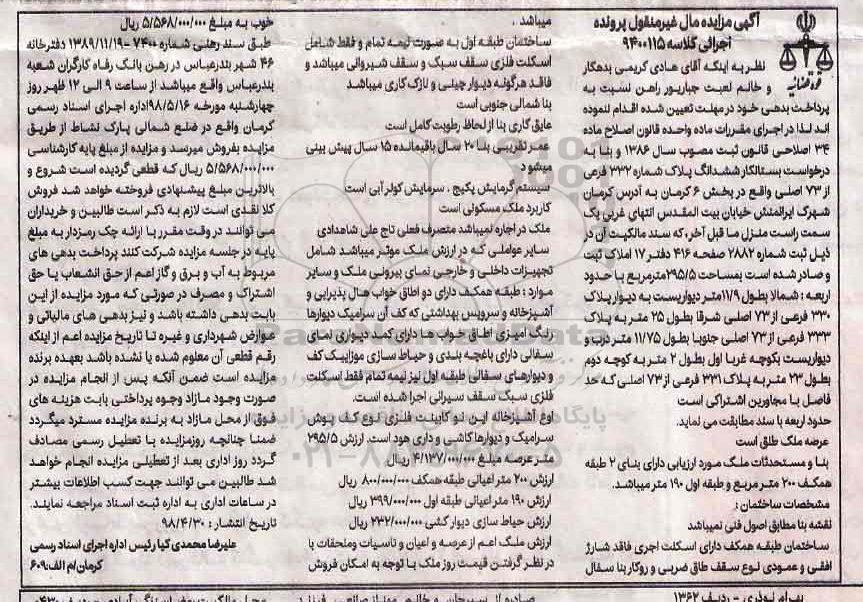 آگهی مزایده مال غیرمنقول پرونده
اجرائی کلاسه ۹۴۰۰۱۱۵
نظر به اینکه آقای هادی کریمی بدهکار
و خانم لعبت جبارپور راهن نسبت به
پرداخت بدهی خود در مهلت تعیین شده اقدام ننموده
اند لذا در اجرای مقررات ماده واحده قانون اصلاح ماده
۳۴ اصلاحی قانون ثبت مصوب سال ۱۳۸۶ و بنا به
درخواست بستانکار ششدانگ پلاک شماره ۳۳۲ فرعی
از ۷۳ اصلی واقع در بخش ۶ کرمان به آدرس کرمان
شهرک ایرانمنش خیابان بیت المقدس انتهای غربی پک
سمت راست منزل ما قبل آخر، که سند مالکیت آن در
ذیل ثبت شماره ۲۸۸۲ صفحه ۴۱۶ دفتر ۱۷ املاک ثبت
و صادر شده است بمساحت ۲۹۵/۵مترمربع با حدود
اربعه : شمالا بطول ۱۱/۹متر دیواریست به دیوار پلاک
۳۳۰ فرعی از ۷۳ اصلی شرقا بطول ۲۵ متر به پلاک
۳۳۳ فرعی از ۷۳ اصلی جنوبا بطول ۱۱/۷۵ متر درب و
دیواریست بکوچه غربا اول بطول ۲ متر به کوچه دوم
بطول ۲۳ متر به پلاک ۳۳۱ فرعی از ۷۳ اصلی که حد
فاصل با مجاورین اشتراکی است
حدود اربعه با سند مطابقت می نماید.
عرصه ملک طلق است
بنا و مستحدثات ملک مورد ارزیابی دارای بنای ۲ طبقه
همکف ۲۰۰ متر مربع و طبقه اول ۱۹۰ متر میباشد.
مشخصات ساختمان :
نقشه بنا مطابق اصول فنی نمیباشد
ساختمان طبقه همکف دارای اسکلت اجری فاقد شناژ
افقی و عمودی نوع سقف طاق ضربی و روکار بنا سفال
میباشد .
ساختمان طبقه اول به صورت نیمه تمام و فقط شامل
اسکلت فلزی سقف سبک و سقف شیروانی میباشد و
فاقد هرگونه دیوار چینی و نازک کاری میباشد
بنا شمالی جنوبی است
عایق کاری بنا از لحاظ رطوبت کامل است
عمر تقریبی بنا ۲۰ سال باقیمانده ۱۵ سال پیش بینی
میشود
سیستم گرمایش پکیج . سرمایش کولر آبی است
کاربرد ملک مسکونی است
ملک در اجاره نمیباشد متصرف فعلی تاج علی شاهدادی
سایر عواملی که در ارزش ملک موثر میباشد شامل
تجهیزات داخلی و خارجی نمای بیرونی ملک و سایر
موارد : طبقه همکف دارای دو اطاق خواب هال پذیرایی و
آشپزخانه و سرویس بهداشتی که کف آن سرامیک دیوارها
رنگ آمیزی اطاق خواب ها دارای کمد دیواری نمای
سفالی دارای باغچه بندی و حیاط سازی موزاییک کف
و دیوارهای سفالی طبقه اول نیز نیمه تمام فقط اسکلت
فلزی سبک سقف سیرانی اجرا شده است.
اوع آشپزخانه این نو کابینت فلزی نوع کف پوش
سرامیک و دیوارها کاشی و داری هود است. ارزش ۲۹۵/۵
متر عرصه مبلغ ۴/۱۳۷/۰۰۰/۰۰۰ ریال
ارزش ۲۰۰ متر اعیانی طبقه همکف ۸۰۰/۰۰۰/۰۰۰ ریال
ارزش ۱۹۰ متر اعیانی طبقه اول ۳۹۹/۰۰۰/۰۰۰ ریال
ارزش حیاط سازی دیوار کشی ۲۳۲/۰۰۰/۰۰۰ ریال
ارزش ملک اعم از عرصه و اعیان و تاسیات وملحقات با
در نظر گرفتن قیمت روز ملک با توجه به امکان فروش
خوب به مبلغ ۵/۵۶۸/۰۰۰/۰۰۰ ریال
طبق سند رهنی شماره ۷۴۰۰ -۱۳۸۹/۱۱/۱۹ دفترخانه
۴۶ شهر بندرعباس در رهن بانک رفاه کارگران شعبه
بندرعباس واقع میباشد از ساعت ۹ الی ۱۲ ظهر روز
چهارشنبه مورخه ۹۸/۵/۱۶اداره اجرای اسناد رسمی
کرمان واقع در ضلع شمالی پارک نشاط از طریق
مزایده بفروش میرسد و مزایده از مبلغ پایه کارشناسی
۵/۵۶۸/۰۰۰/۰۰۰ ریال که قطعی گردیده است شروع و
بالاترین مبلغ پیشنهادی فروخته خواهد شد فروش
کلا نقدی است لازم به ذکر است طالبین و خریداران
می توانند در وقت مقرر با ارائه چک رمزدار به مبلغ
پایه در جلسه مزایده شرکت کنند پرداخت بدهی های
مربوط به آب و برق و گاز اعم از حق انشعاب یا حق
اشتراک و مصرف در صورتی که مورد مزایده از این
بابت بدهی داشته باشد و نیز بدهی های مالیاتی و
عوارض شهرداری و غیره تا تاریخ مزایده اعم از اینکه
رقم قطعی آن معلوم شده یا نشده باشد بعهده برنده
مزایده است ضمن آنکه پس از انجام مزایده در
صورت وجود مازاد وجوه پرداختی بابت هزینه های
فوق از محل مازاد به برنده مزایده مسترد میگردد
ضمنا چنانچه روزمزایده با تعطیل رسمی مصادف
گردد روز اداری بعد از تعطیلی مزایده انجام خواهد
شد طالبین می توانند جهت کسب اطلاعات بیشتر
در ساعات اداری به اداره ثبت اسناد مراجعه نمایند.
تاریخ انتشار : ۹۸/۴/۳۰
علیرضا محمدی کیا رئیس اداره اجرای اسناد رسمی
کرمان/م الف:۶۰۹